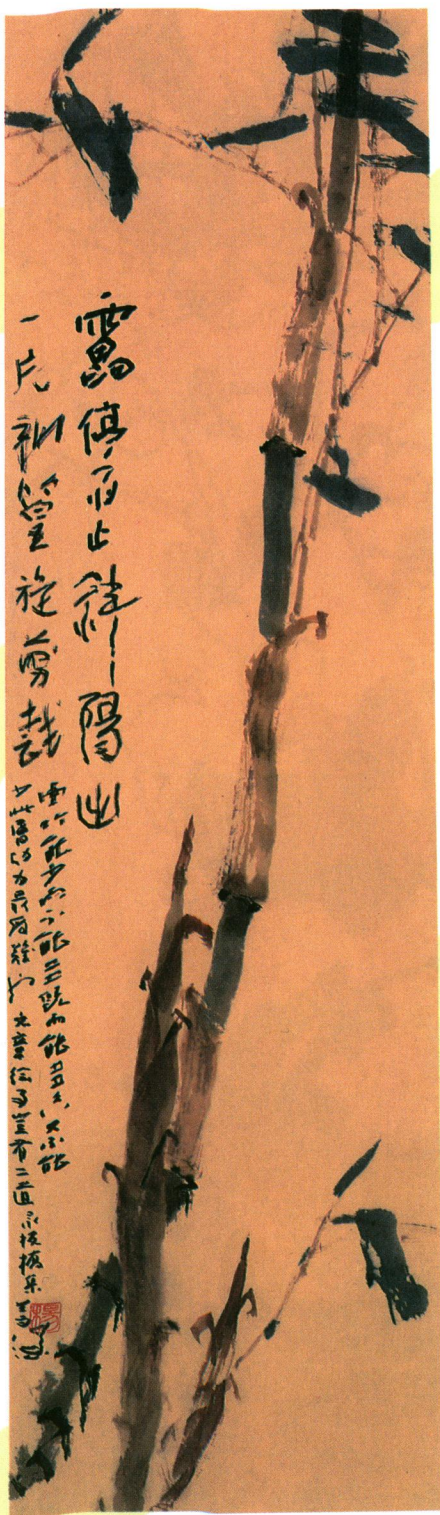 靁停雨止斜陽出
一片新篁旋剪裁
畫竹能少而不能多既而能多矣又不能
少此層功力最爲難也 文章繪事豈有二道 录板橋集
楊